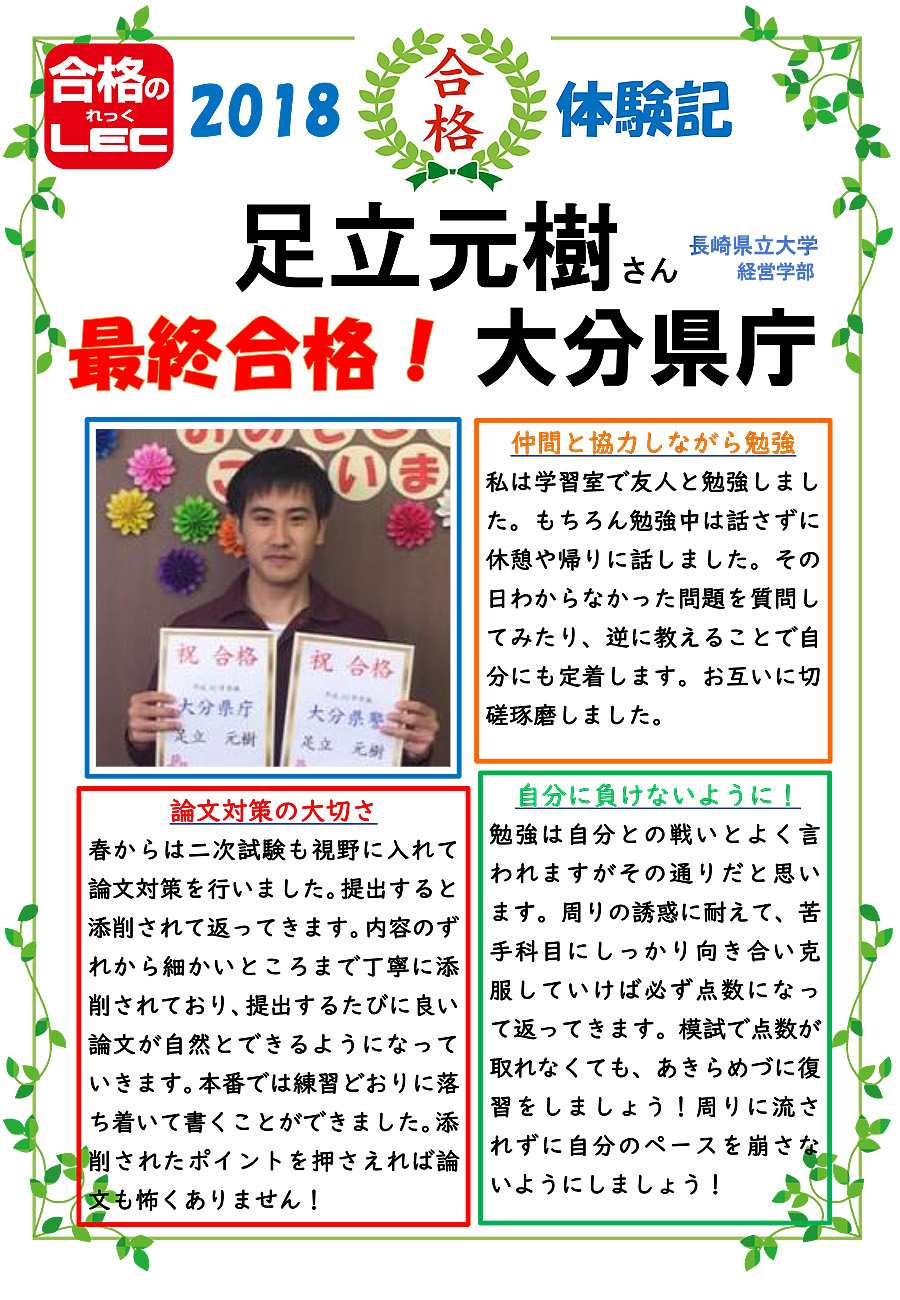 合格の
れっく
LEC
2018
合格
体験記
足立元樹さん
長崎県立大学
経営学部
最終合格！ 大分県庁
祝 合格
大分県庁
足立 元樹
祝 合格
大分県警
足立 元樹
仲間と協力しながら勉強
私は学習室で友人と勉強しまし
た。もちろん勉強中は話さずに
休憩や帰りに話しました。その
日わからなかった問題を質問し
てみたり、逆に教えることで自
分にも定着します。お互いに切
磋琢磨しました。
論文対策の大切さ
春からは二次試験も視野に入れて
論文対策を行いました。提出すると
添削されて返ってきます。内容のず
れから細かいところまで丁寧に添
削されており、提出するたびに良い
論文が自然とできるようになって
いきます。本番では練習どおりに落
ち着いて書くことができました。添
削されたポイントを押さえれば論
文も怖くありません！
自分に負けないように！
勉強は自分との戦いとよく言
われますがその通りだと思い
ます。周りの誘惑に耐えて、苦
手科目にしっかり向き合い克
服していけば必ず点数になっ
て返ってきます。模試で点数が
取れなくても、あきらめづに復
習をしましょう！周りに流さ
れずに自分のペースを崩さな
いようにしましょう！